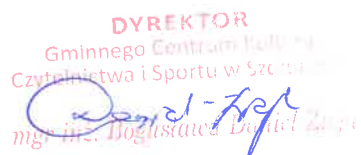 DYREKTOR
Gminnego Centrum Kultury
Czytelnictwa i Sportu w
mgr inż. Bogusława Daniel